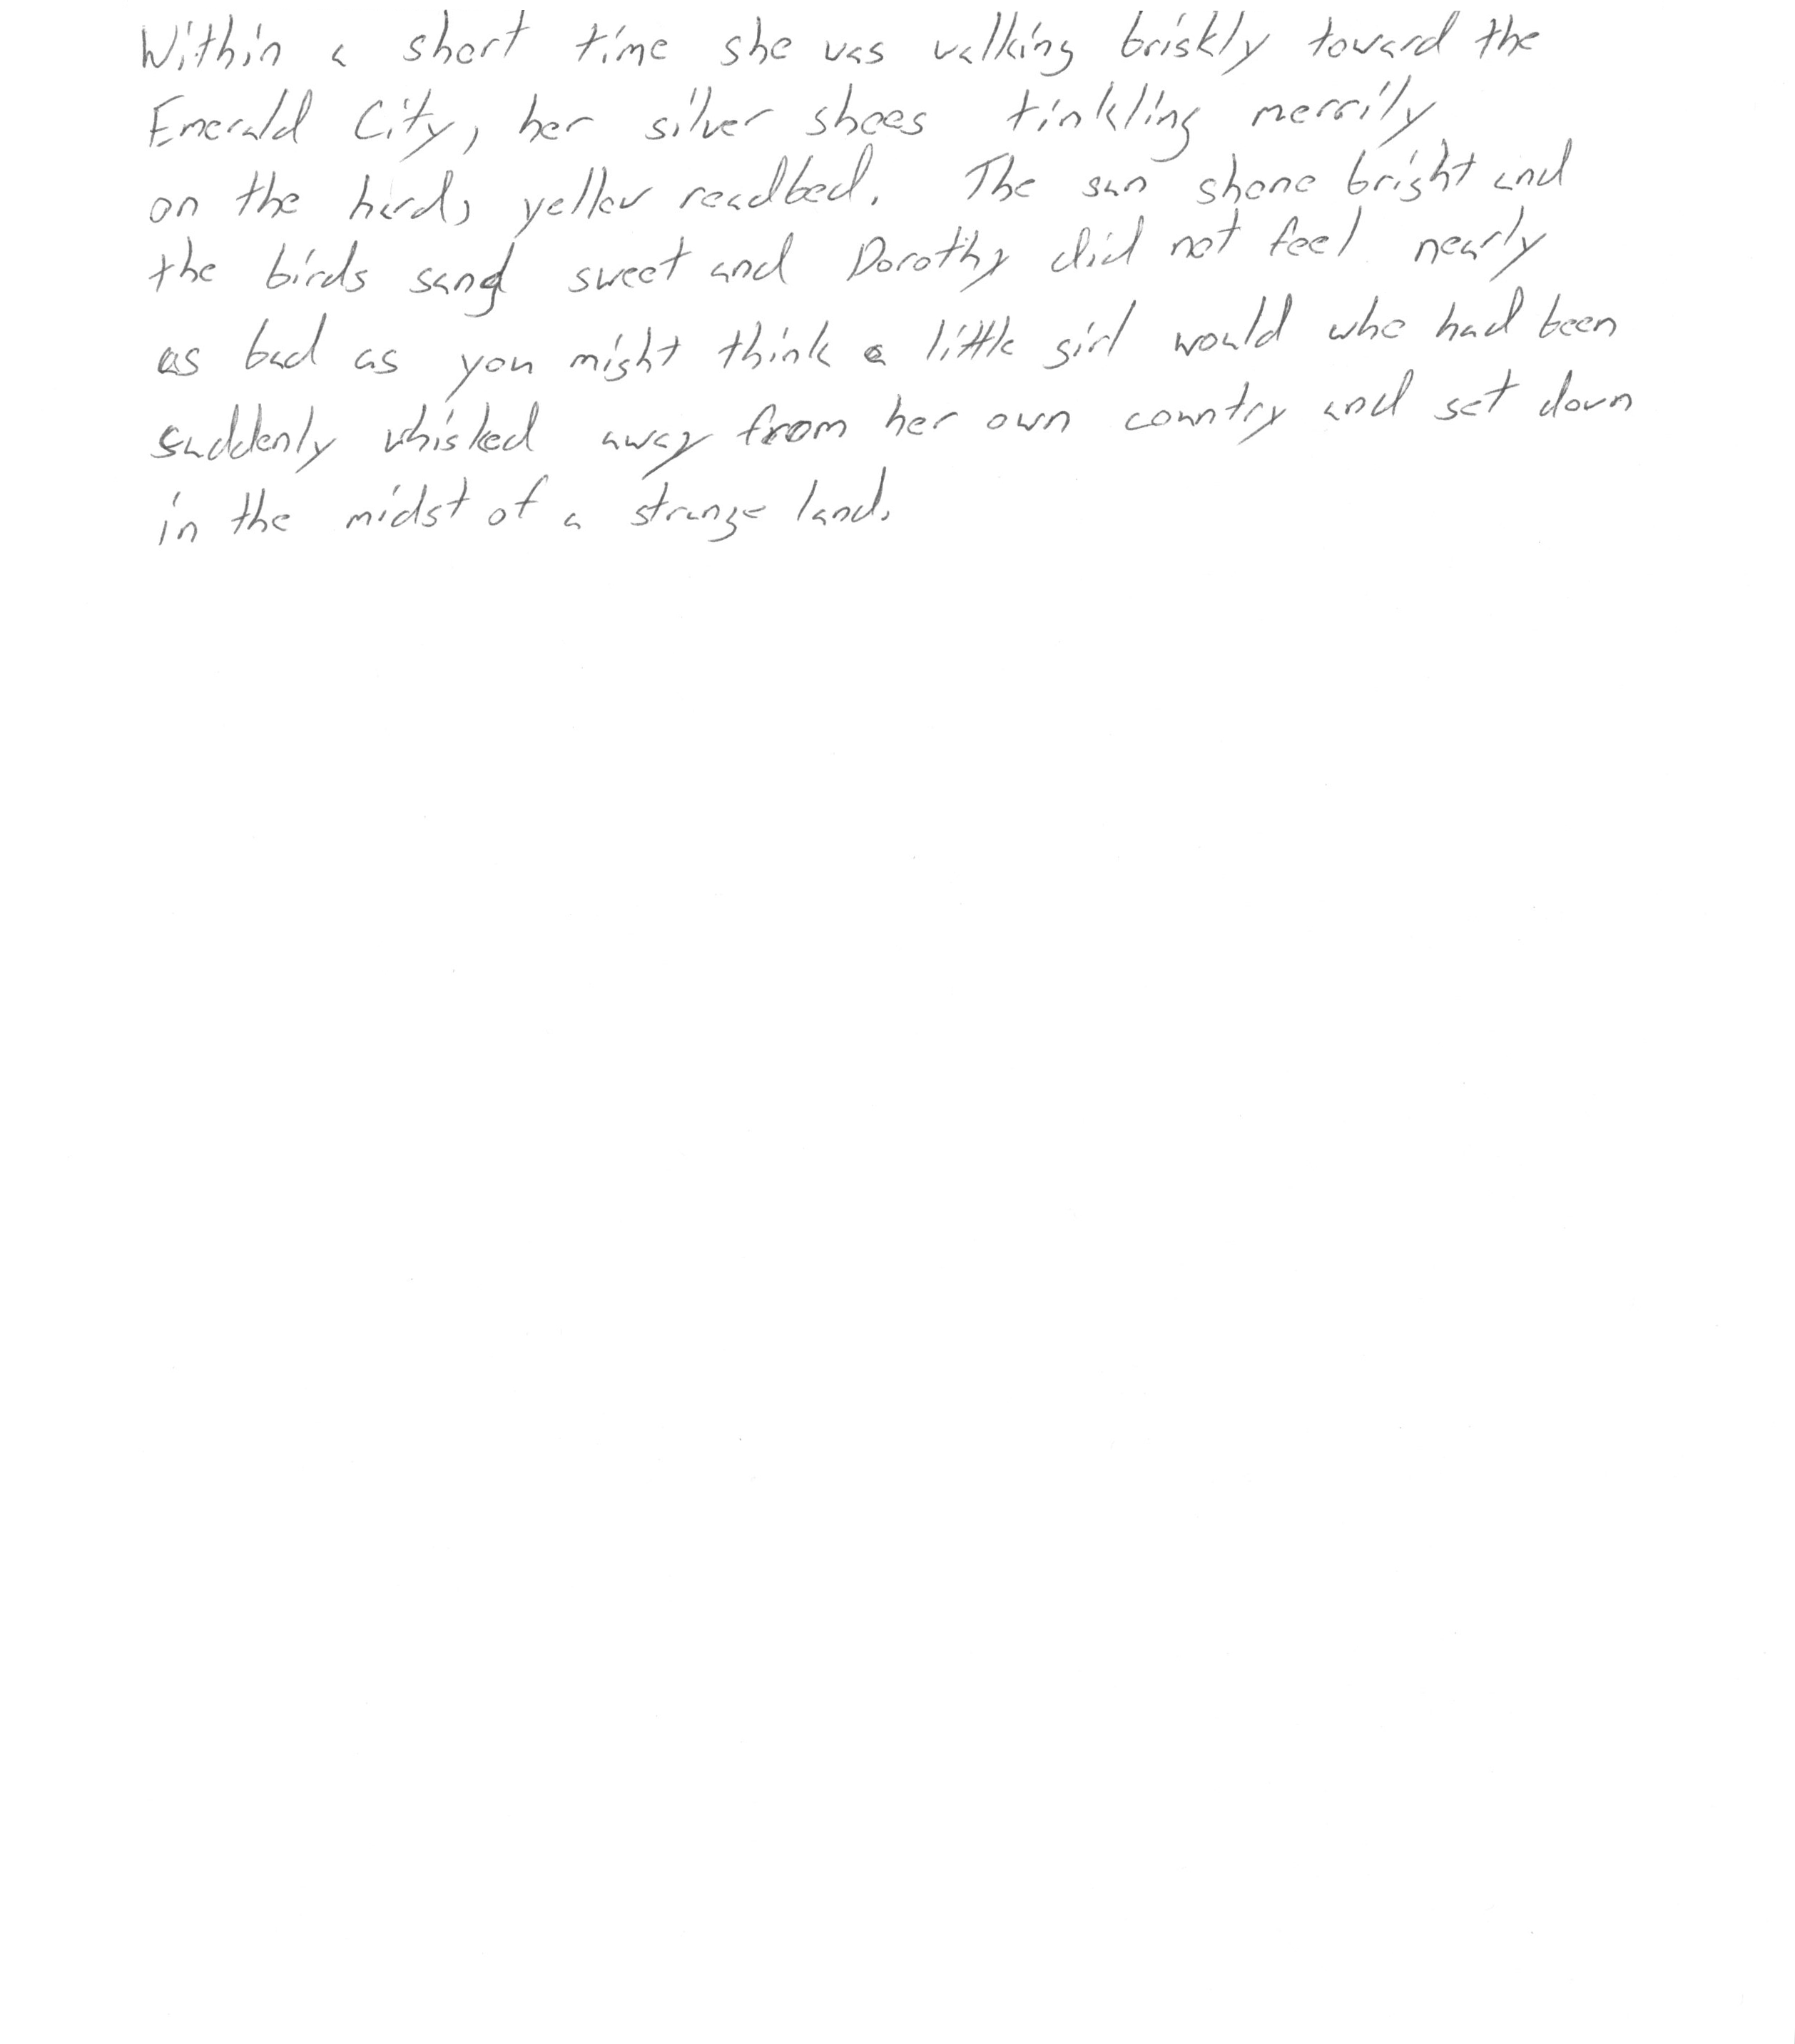 Within a short time she was walking briskly toward the
Emerald City, her silver shoes tinkling merrily
on the hard, yellow roadbed. The sun shone bright and
the birds sang sweet and Dorothy did not feel nearly
as bad as you might think a little girl would who had been
suddenly whisked away from her own country and set down
in the midst of a strange land.